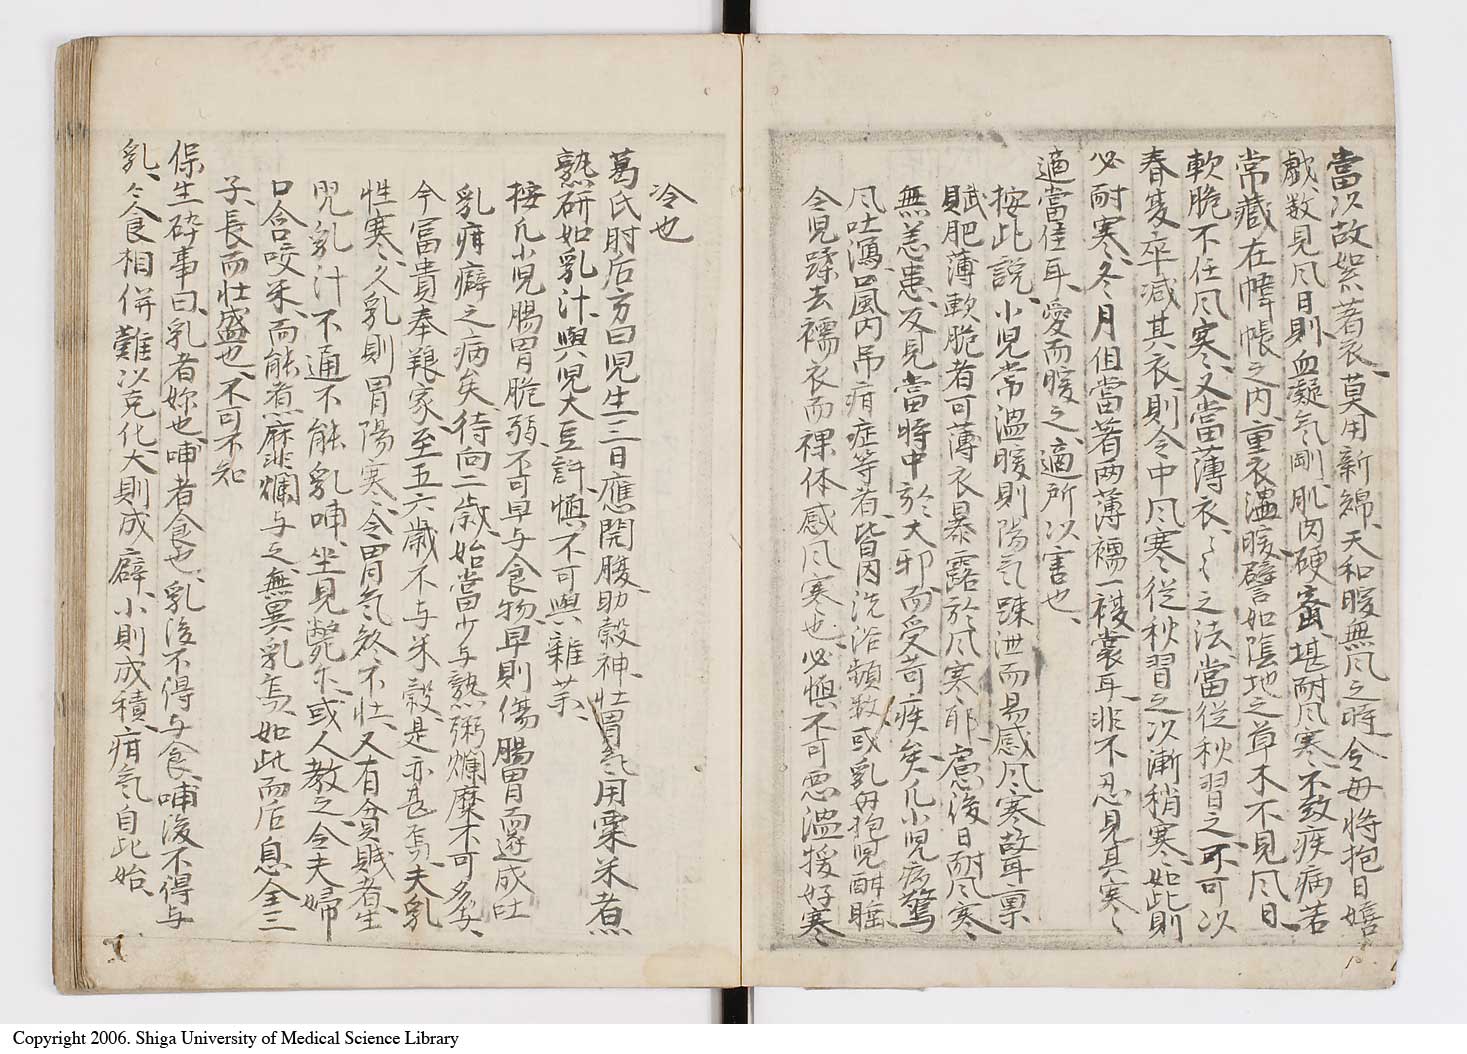 當以故絮著衣、莫用新綿、天和暖無風之時令母將抱日嬉
戯数見風日則血凝气剛、肌肉硬密、堪耐風寒、不致疾病若
常藏在幃帳之内、重衣温暖、譬如陰地之草木不見風日、
軟脆不任風寒、又當薄衣、〻〻之法當從秋習之、不可以
春夏卒減其衣、則令中風寒、從秋習之以漸稍寒、如此則
必耐寒、冬月但當著两薄襦一複裳耳、非不忍見其寒〻
適當佳耳、愛而暖之、適所以害也、
按此説、小児常温暖則陽气疎泄而易感風寒故耳稟
賦肥薄軟脆者可薄衣暴露於風寒耶、慮後日耐風寒
無恙患、及見當時中於大邪而受苛疾矣、凡小児病驚
風吐瀉口風内吊疳症等者、皆因洗浴頻数或乳母抱児酣睡
令児蹂去襦衣而裸体感風寒也、必慎不可悪温援好寒
冷也
葛氏肘后方曰児生三日應開腹助穀神壮胃气用粟米煮
熟研如乳汁、與児大豆許、慎不可與雜芋、
按凡小児腸胃脆弱、不可早与食物、早則傷腸胃而遂成吐
乳疳癖之病矣、待向二歳、始當少与熟粥爛糜不可多与、
今富貴奉粮家、至五六歳不与米穀、是亦甚焉、夫乳
性寒、久乳則胃陽寒、令胃气煞不壮、又有貧賎者、生
児乳汁不通不能乳哺、坐見斃不或人教之、令夫婦
口含咬米、而能煮糜爛与之、無異乳焉、如此而后息全三
子、長而壮盛也、不可不知
保生碎事曰、乳者妳也、哺者食也、乳後不得与食、哺後不得与
乳、〻食相併難以克化、大則成癖、小則成積、疳气自此始、